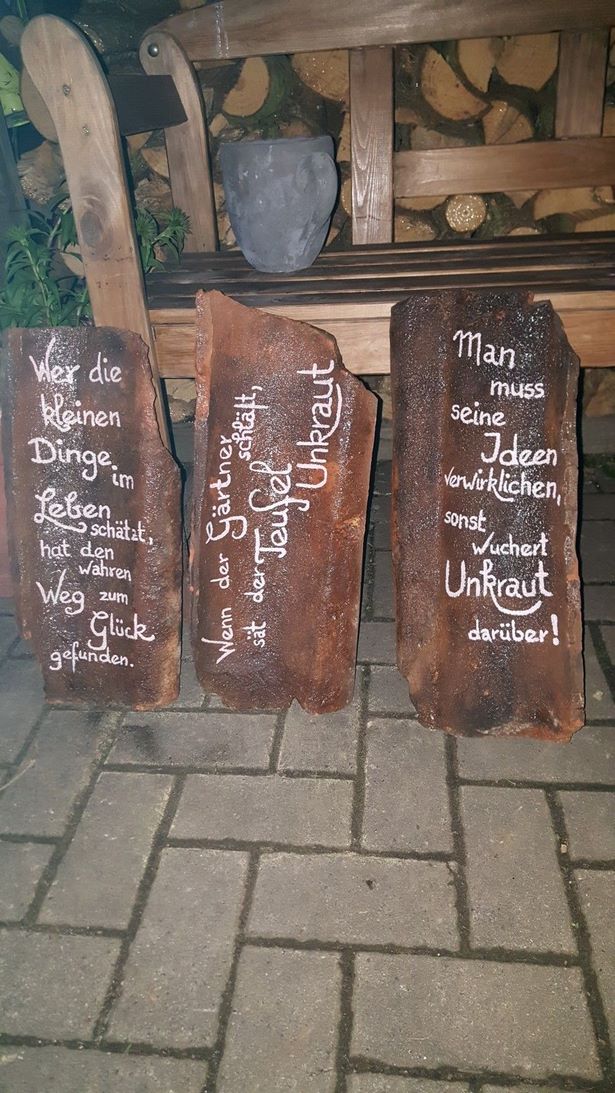 Wer die
kleinen
Dinge im
Leben
schätzt,
hat den
wahren
Weg zum
Glück
gefunden.
Wenn der Gärtner
schläft,
sät der Teufel
Unkraut
Man
muss
seine
Ideen
verwirklichen,
sonst
wuchert
Unkraut
darüber!